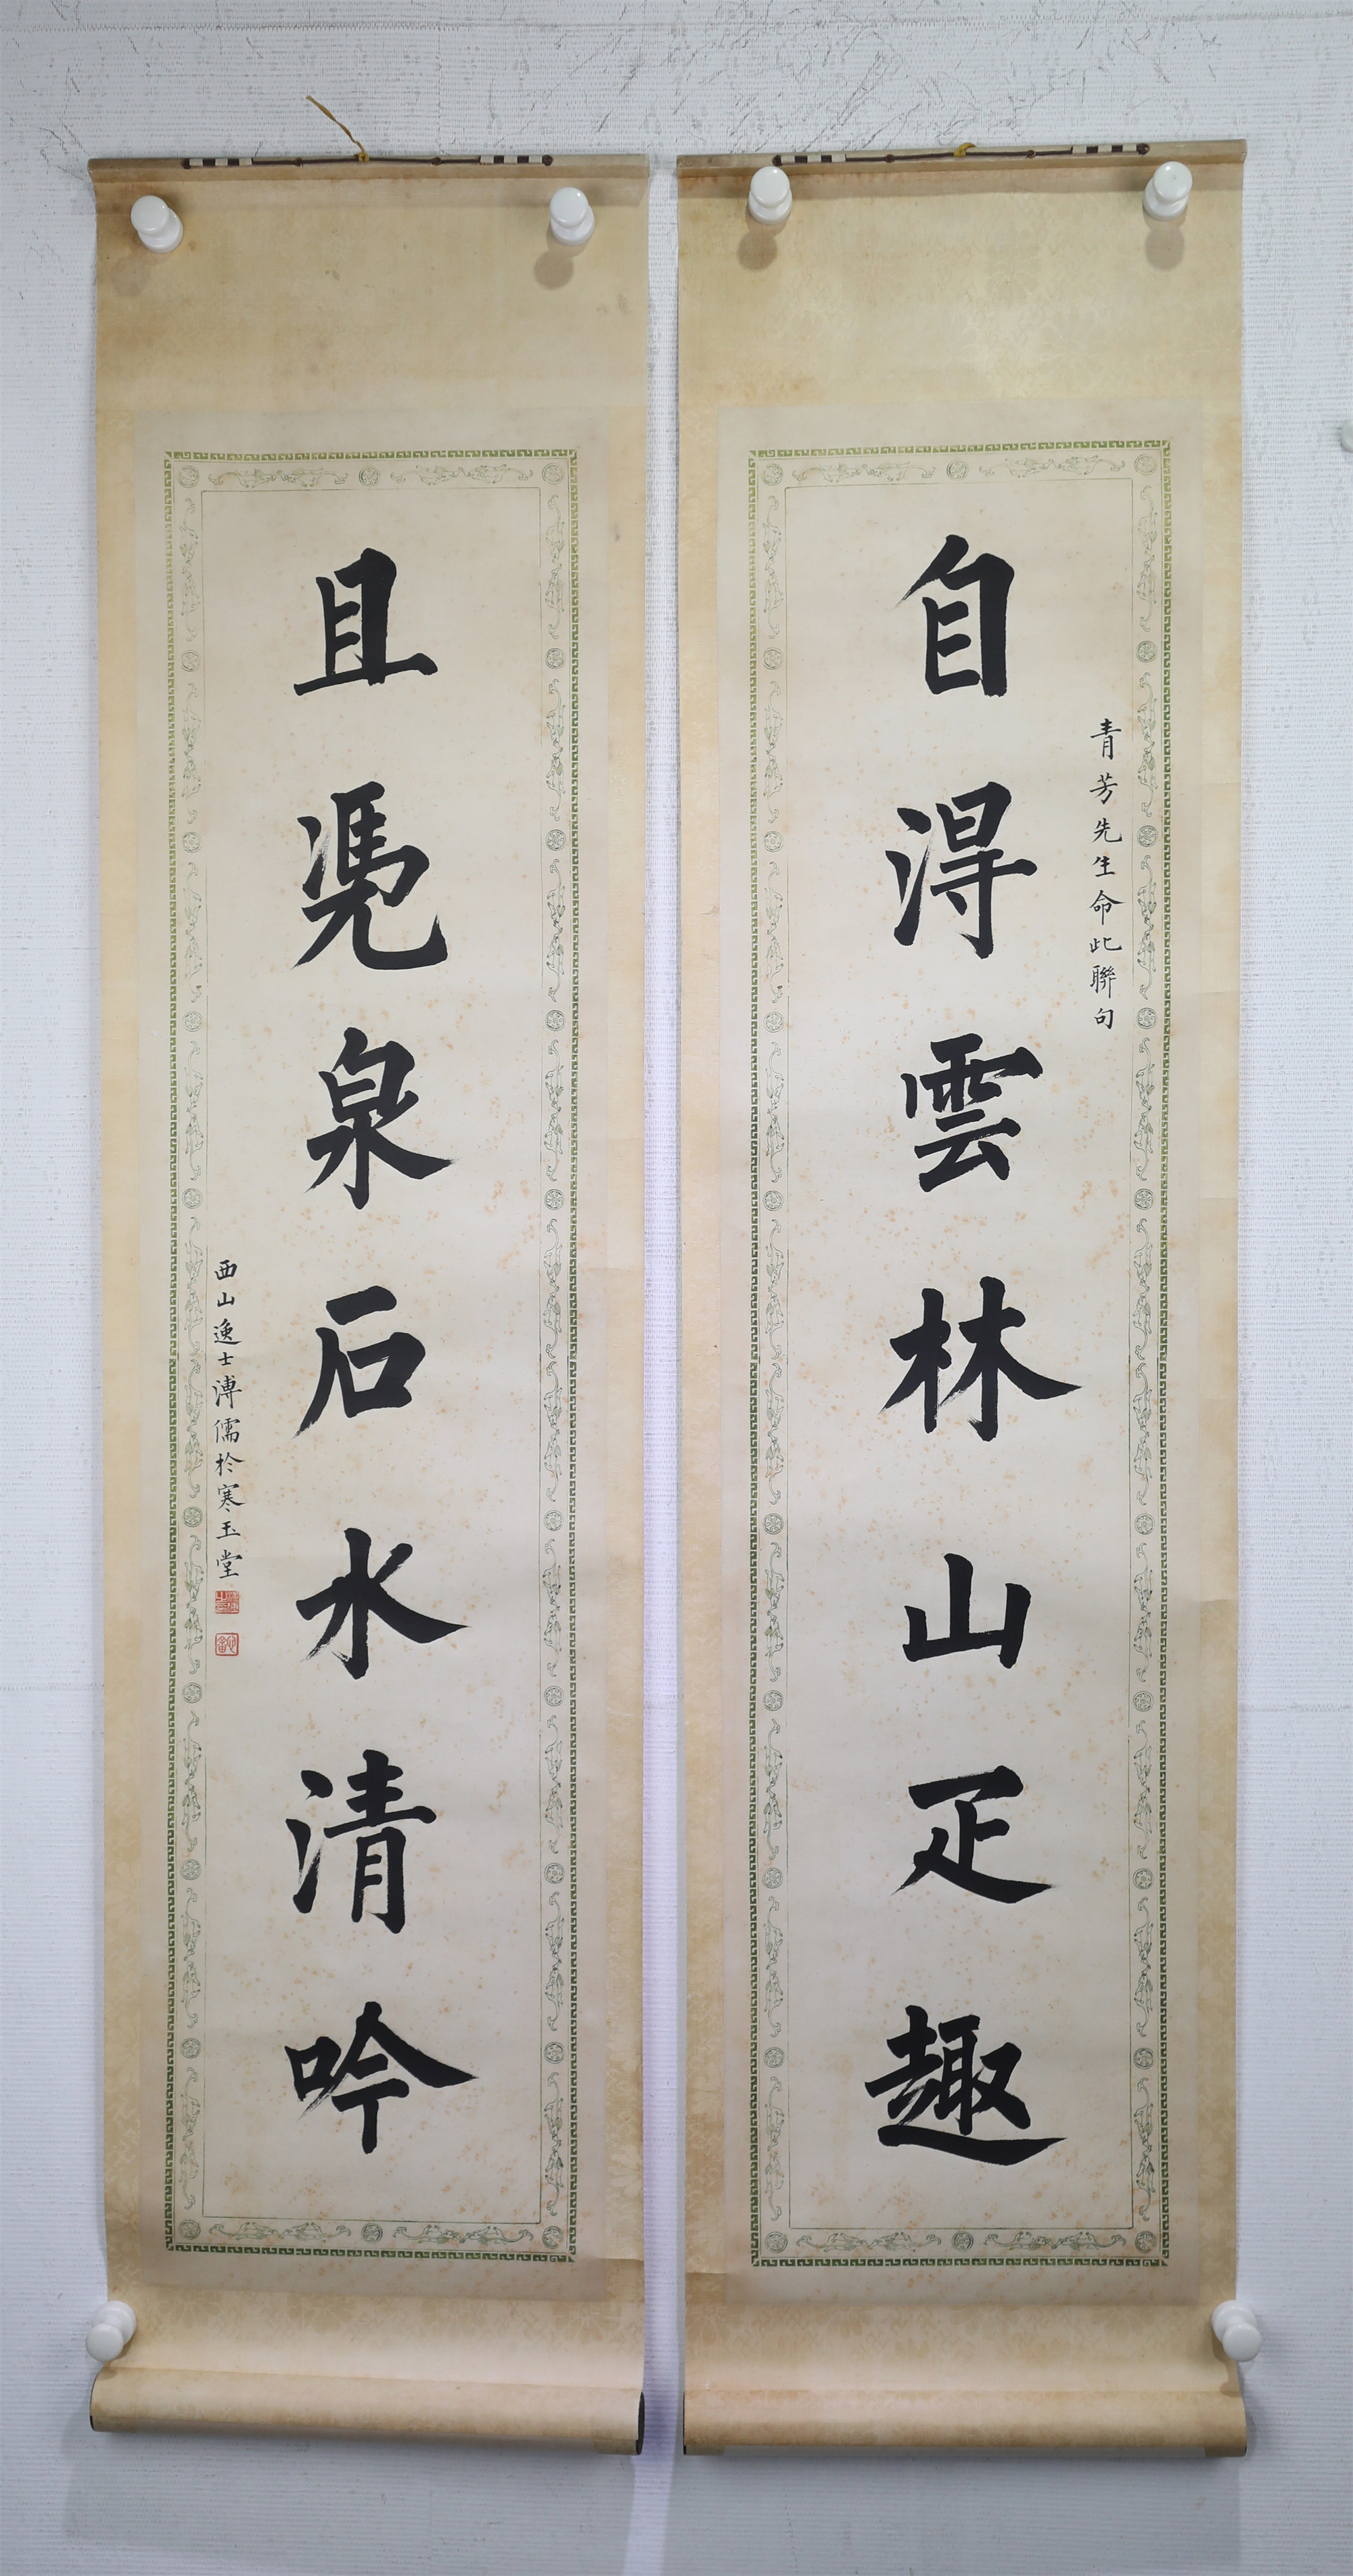 青芳先生命此聯句
自淂雲林山疋趣
且凴泉石水清吟
西山逸士溥儒於寒玉堂